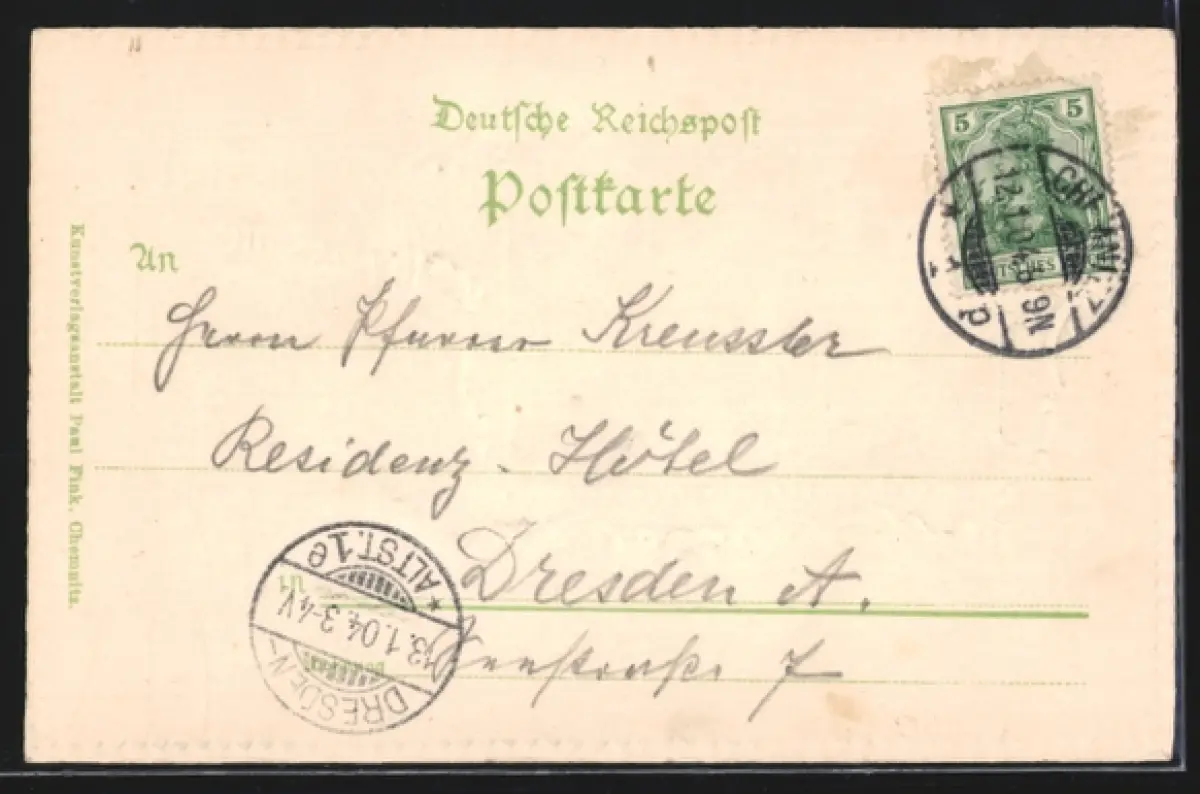 Deutsche Reichspost
Postkarte
An
Herrn Pfarrer Kreusster
Residenz-Hôtel
Dresden A.
Seestraße 7
in
5 5
12.1.04
9N
d
DRESDEN-
*ALTST.1e
13.1.04. 3-4V
Kunstverlagsanstalt Paul Fink, Chemnitz.